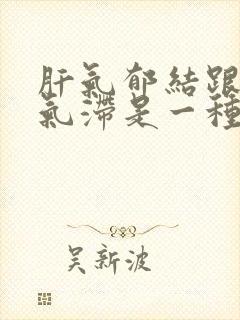 肝氣郁結跟
氣滯是一種
吴新波